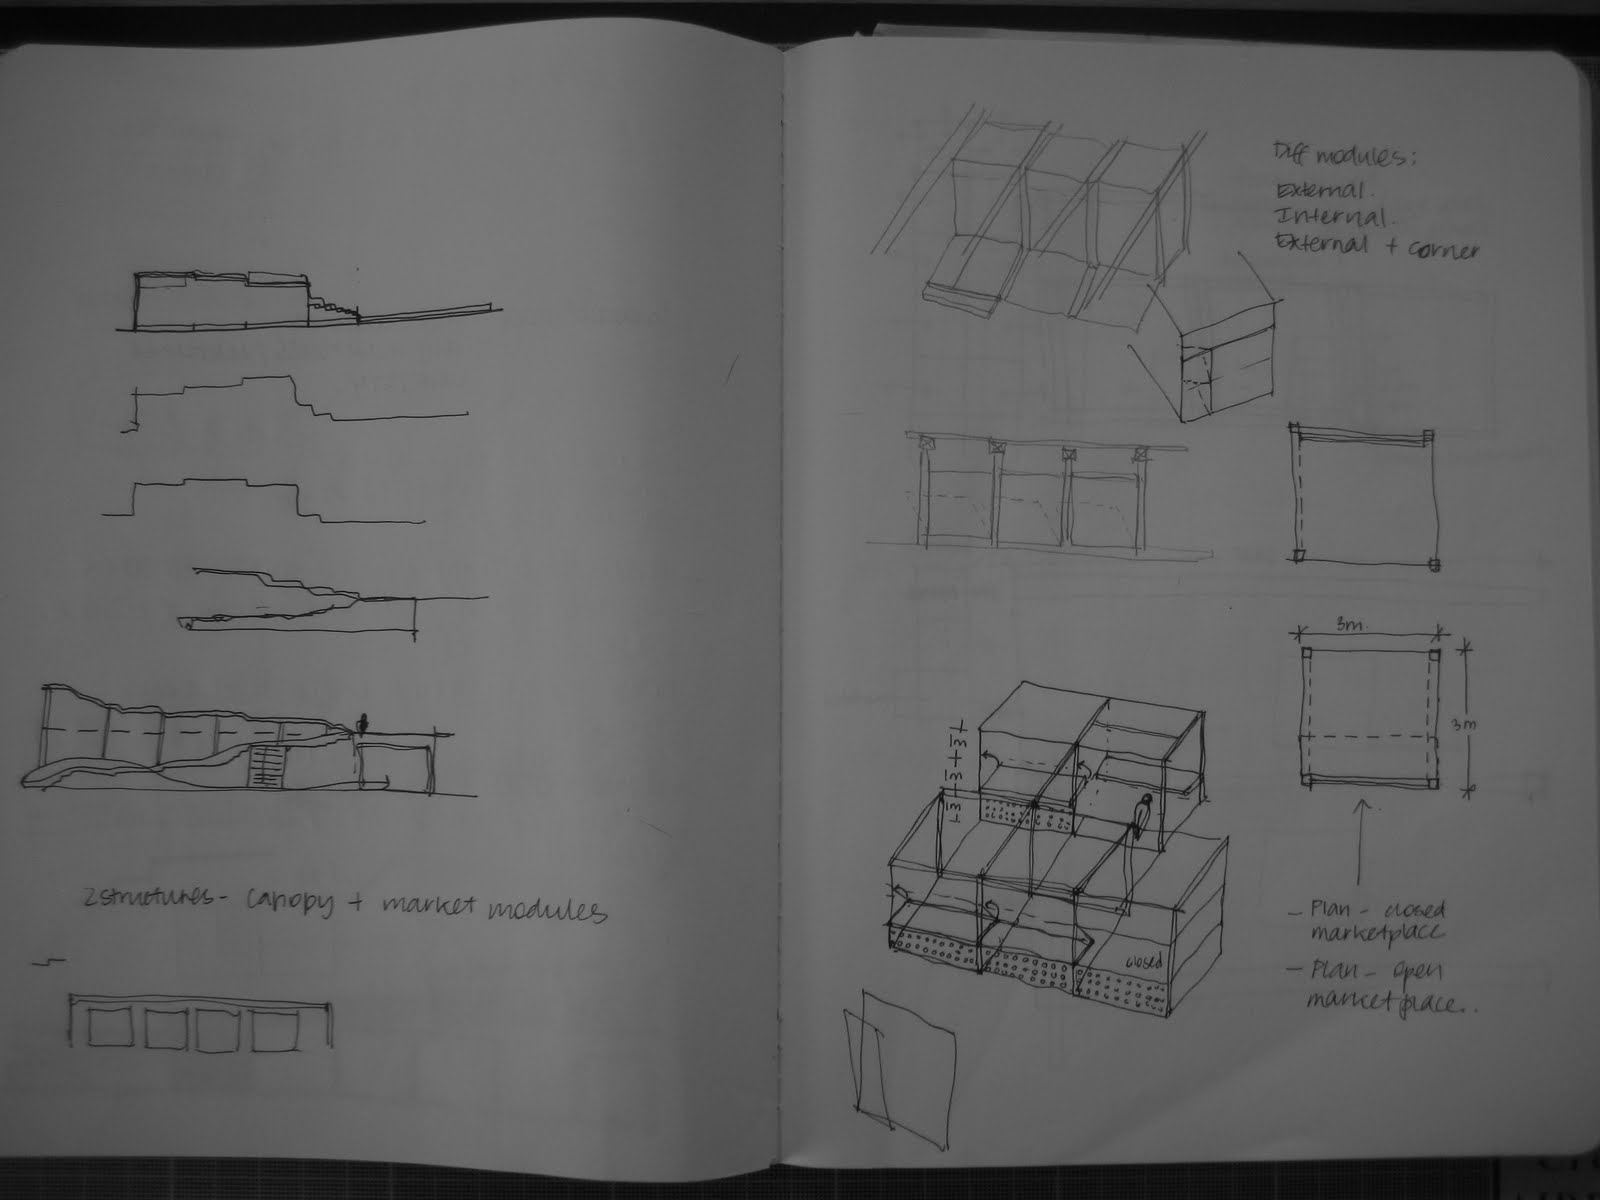 2 structures - canopy + market modules
Diff modules:
External.
Internal.
External + corner
3m.
3m
closed
- Plan - closed
marketplace
- Plan - open
marketplace..